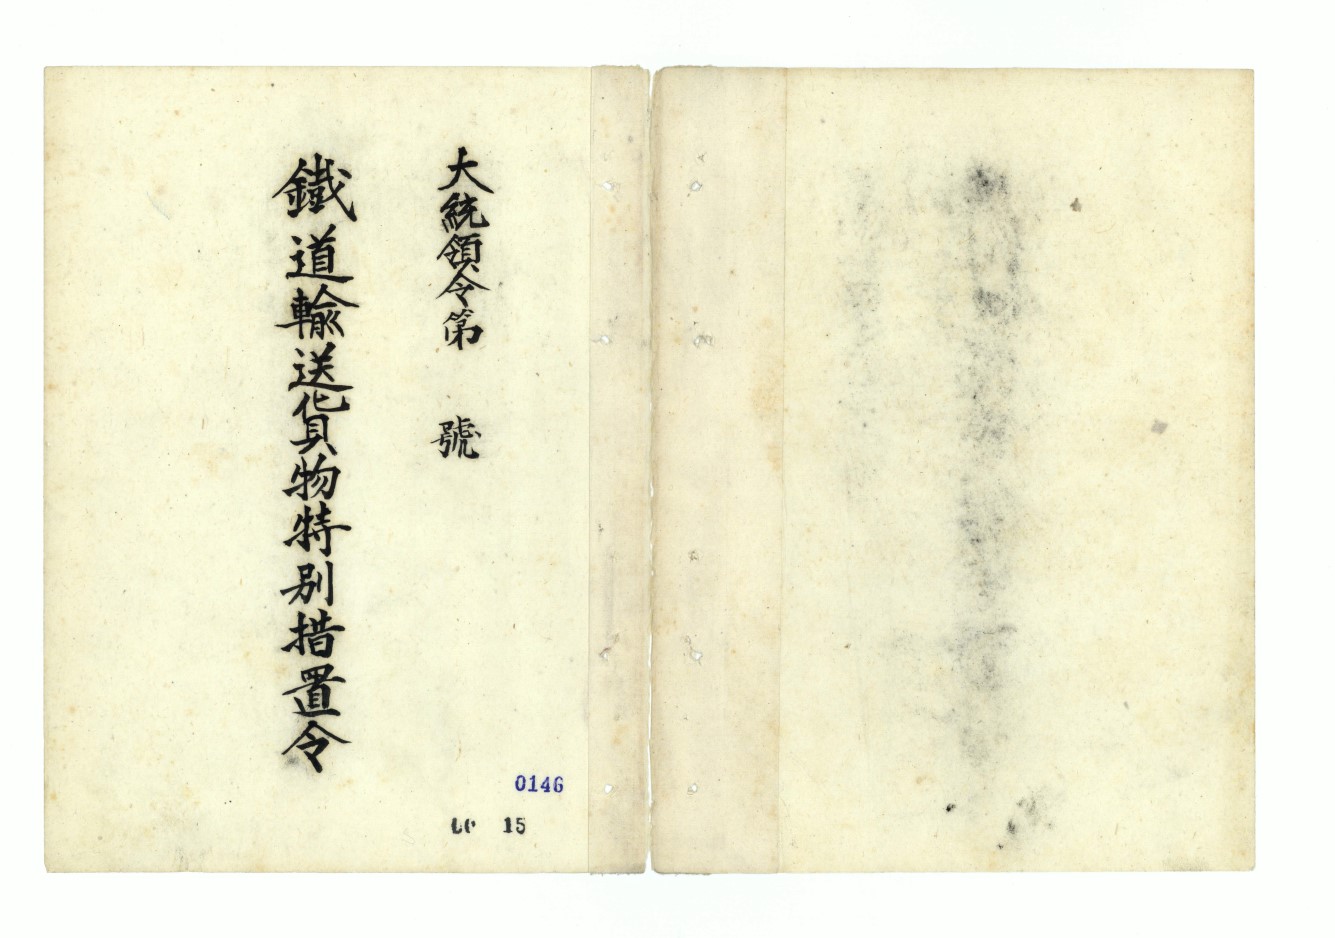 大統領令第 號
鐵道輸送貨物特別措置令
0146
15